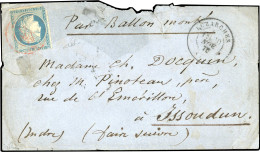 Par Ballon monté
Madame Ch. Docquin,
chez M. Pinoteau, père,
rue de l'Emérillon,
à Issoudun.
(Indre) (faire suivre)